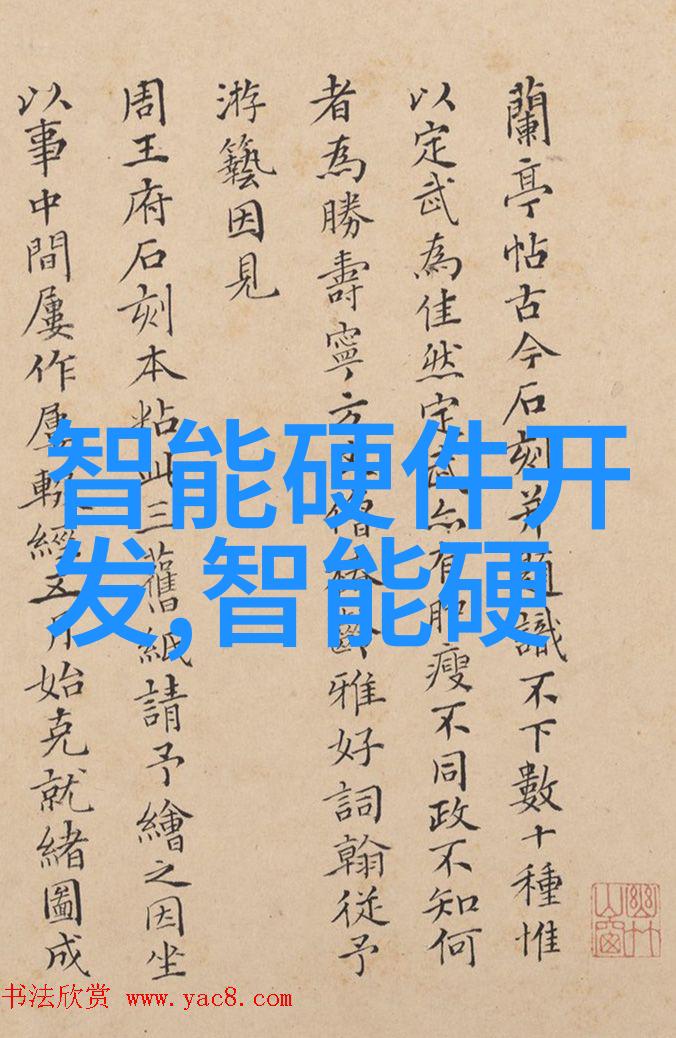 蘭亭帖古今石刻并題識不下數十種惟
以定武為佳然定武亦有肥瘦不同政不知何
者為勝壽寧方僧雅好詞翰從予
游藝因見
周王府石刻本粘此三舊紙請予繪之因坐
以事中間屢作屢輟經五月始克就緒圖成
智能硬件开
发,智能硬
书法欣赏 www.yac8.com